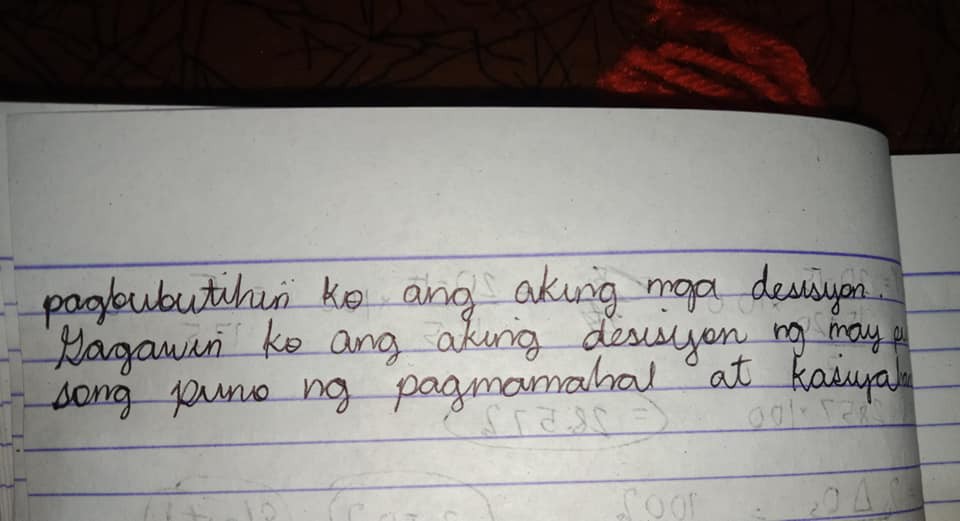 pagbubutihin ko ang aking mga desisyon.
Gagawin ko ang aking desisyon ng may
song puno ng pagmamahal at kasiya